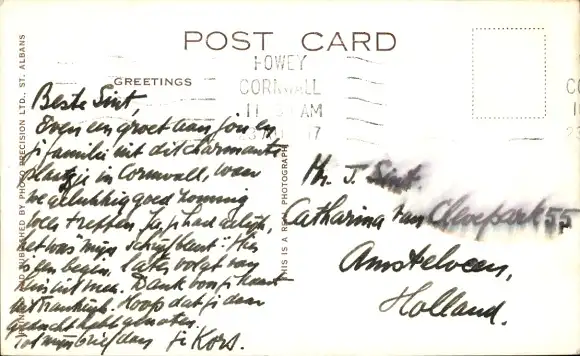 POST CARD
GREETINGS
FOWEY
CORNWALL
11 AM
Beste Sint,
Even een groet aan jou en
je familie uit dit charmante
plaatsje in Cornwall, waar
we gelukkig goed
weer treffen. Ja, je had gelijk,
het was mijn schuld. Hier
is een begin, later volgt van
huis uit meer. Dank voor je kaart
uit Frankrijk. Hoop dat je daar
hebt genoten.
Tot mijn brief dan Kors.
Mr. J. Sint.
Catharina van Clevepark 55
Amstelveen,
Holland.
PUBLISHED BY PHOTO PRECISION LTD., ST. ALBANS
THIS IS A REAL PHOTOGRAPH